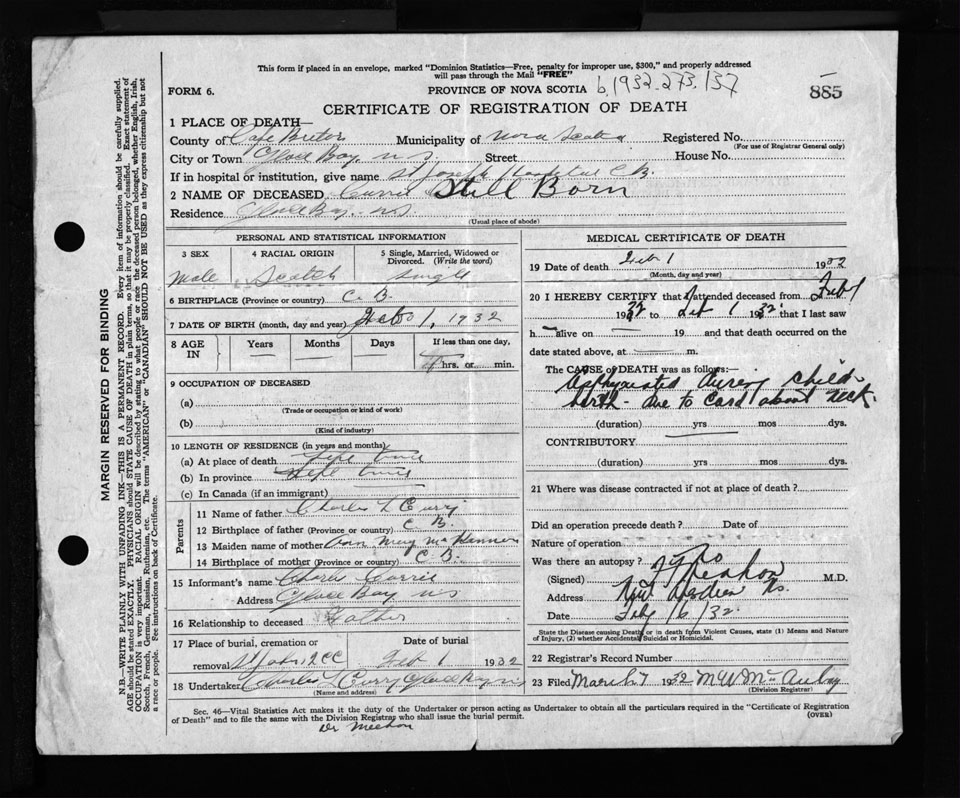 This form if placed in an envelope, marked "Dominion Statistics—Free, penalty for improper use, $300," and properly addressed
will pass through the Mail "FREE"
FORM 6.
PROVINCE OF NOVA SCOTIA
b.1932.273.137
885
CERTIFICATE OF REGISTRATION OF DEATH
1 PLACE OF DEATH—
County of Cape Breton Municipality of Nova Scotia Registered No.
(For use of Registrar General only)
City or Town Glace Bay, N S, Street House No.
If in hospital or institution, give name St Joseph Hospital C B.
2 NAME OF DECEASED Currie Still Born
Residence Glace Bay. NS
(Usual place of abode)
PERSONAL AND STATISTICAL INFORMATION
3 SEX
Male
4 RACIAL ORIGIN
Scotch
5 Single, Married, Widowed or
Divorced. (Write the word)
Single
6 BIRTHPLACE (Province or country) C. B.
7 DATE OF BIRTH (month, day and year) Feb 1, 1932
8 AGE IN
Years Months Days
If less than one day,
hrs. or min.
9 OCCUPATION OF DECEASED
(a)
(Trade or occupation or kind of work)
(b)
(Kind of industry)
10 LENGTH OF RESIDENCE (in years and months)
(a) At place of death Life time
(b) In province Life time
(c) In Canada (if an immigrant)
Parents
11 Name of father Charles L Curry
12 Birthplace of father (Province or country) C B.
13 Maiden name of mother Ann Mary McKinnon
14 Birthplace of mother (Province or country) C B.
15 Informant's name Charles Currie
Address Glace Bay NS
16 Relationship to deceased Father
17 Place of burial, cremation or
removal
Date of burial
Feb 1 1932
18 Undertaker Charles L Curry Glace Bay NS
(Name and address)
MEDICAL CERTIFICATE OF DEATH
19 Date of death Feb 1 1932
(Month, day and year)
20 I HEREBY CERTIFY that I attended deceased from Feb 1
1932 to Feb 1 1932 that I last saw
h alive on 19 and that death occurred on the
date stated above, at m.
The CAUSE OF DEATH was as follows:—
Asphyxiated during child
birth - due to cord about neck.
(duration) yrs mos dys.
CONTRIBUTORY
(duration) yrs mos dys.
21 Where was disease contracted if not at place of death?
Did an operation precede death? Date of
Nature of operation
Was there an autopsy?
(Signed) M.D.
Address New Aberdeen NS.
Date Feby 16/32.
State the Disease causing Death, or in death from Violent Causes, state (1) Means and Nature
of Injury, (2) whether Accidental, Suicidal or Homicidal.
22 Registrar's Record Number
23 Filed March 7 1932
(Division Registrar)
Sec. 46—Vital Statistics Act makes it the duty of the Undertaker or person acting as Undertaker to obtain all the particulars required in the "Certificate of Registration
of Death" and to file the same with the Division Registrar who shall issue the burial permit.
(OVER)
Dr Meehan
MARGIN RESERVED FOR BINDING
N.B.—WRITE PLAINLY WITH UNFADING INK—THIS IS A PERMANENT RECORD. Every item of information should be carefully supplied.
AGE should be stated EXACTLY. PHYSICIANS should STATE CAUSE OF DEATH in plain terms, so that it may be properly classified. Exact statement of
OCCUPATION is very important. RACIAL ORIGIN will be described by stating to what people or race the deceased person belonged, whether English, Irish,
Scotch, French, German, Russian, Ruthenian, etc. The terms "AMERICAN" or "CANADIAN" SHOULD NOT BE USED as they express citizenship but not
a race or people. See instructions on back of Certificate.